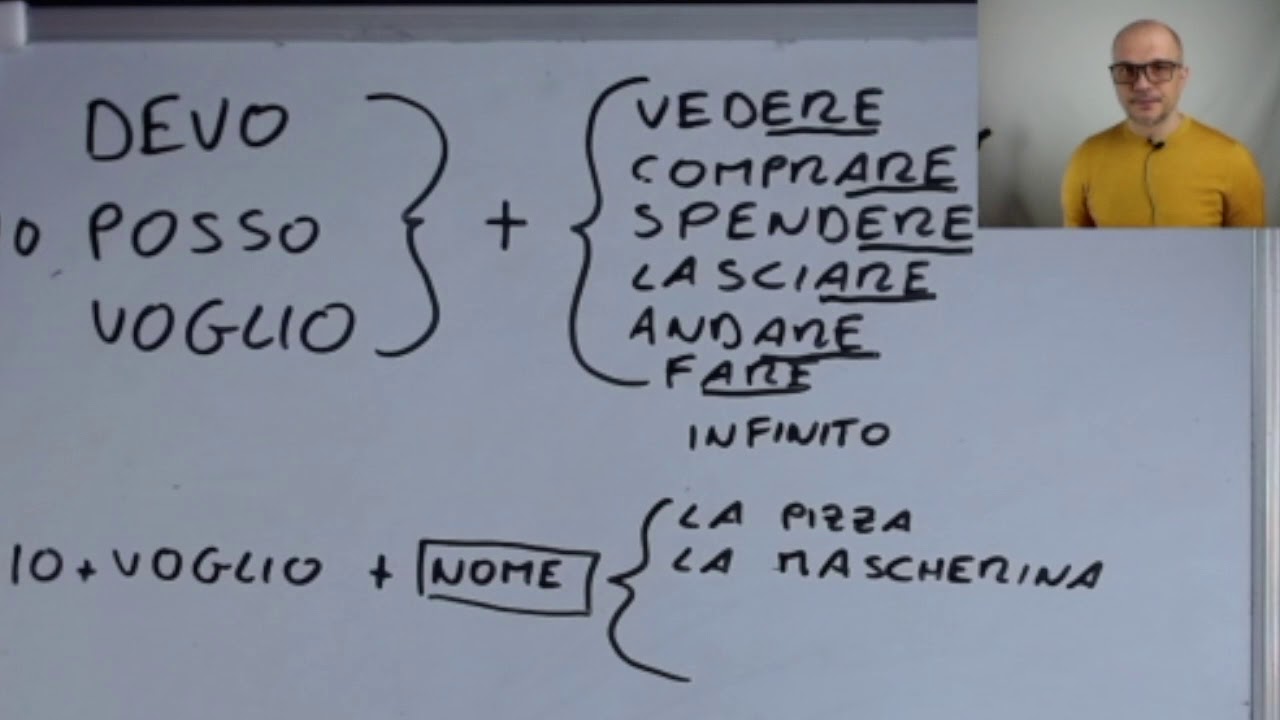 DEVO
IO POSSO
VOGLIO
+
VEDERE
COMPRARE
SPENDERE
LASCIARE
ANDARE
FARE
INFINITO
IO + VOGLIO + NOME
LA PIZZA
LA MASCHERINA